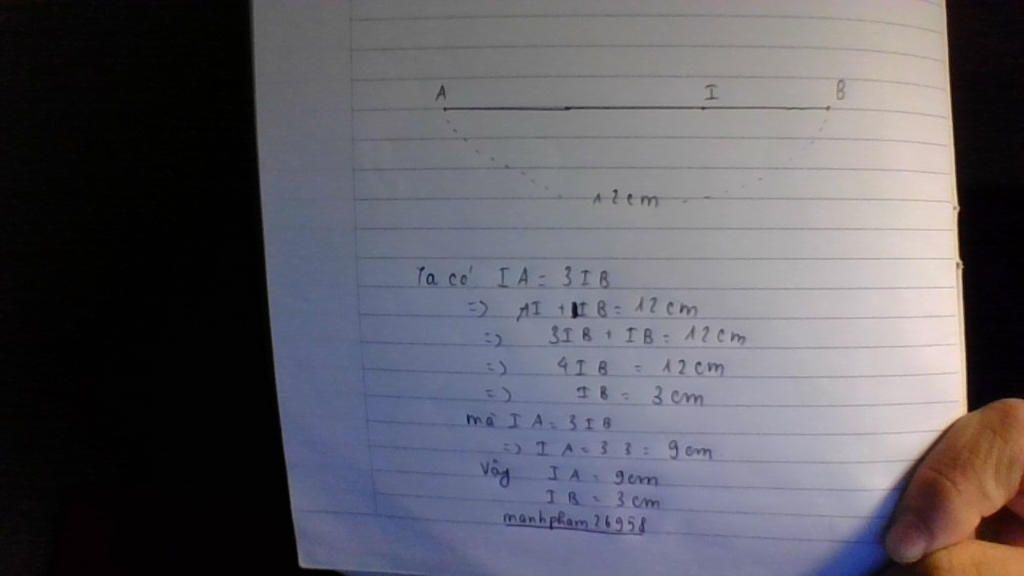 A I B
12cm
Ta có IA = 3IB
=> AI + IB = 12cm
=> 3IB + IB = 12cm
=> 4IB = 12cm
=> IB = 3cm
mà IA = 3IB
=> IA = 3.3 = 9cm
Vậy IA = 9cm
IB = 3cm
manhpham26958